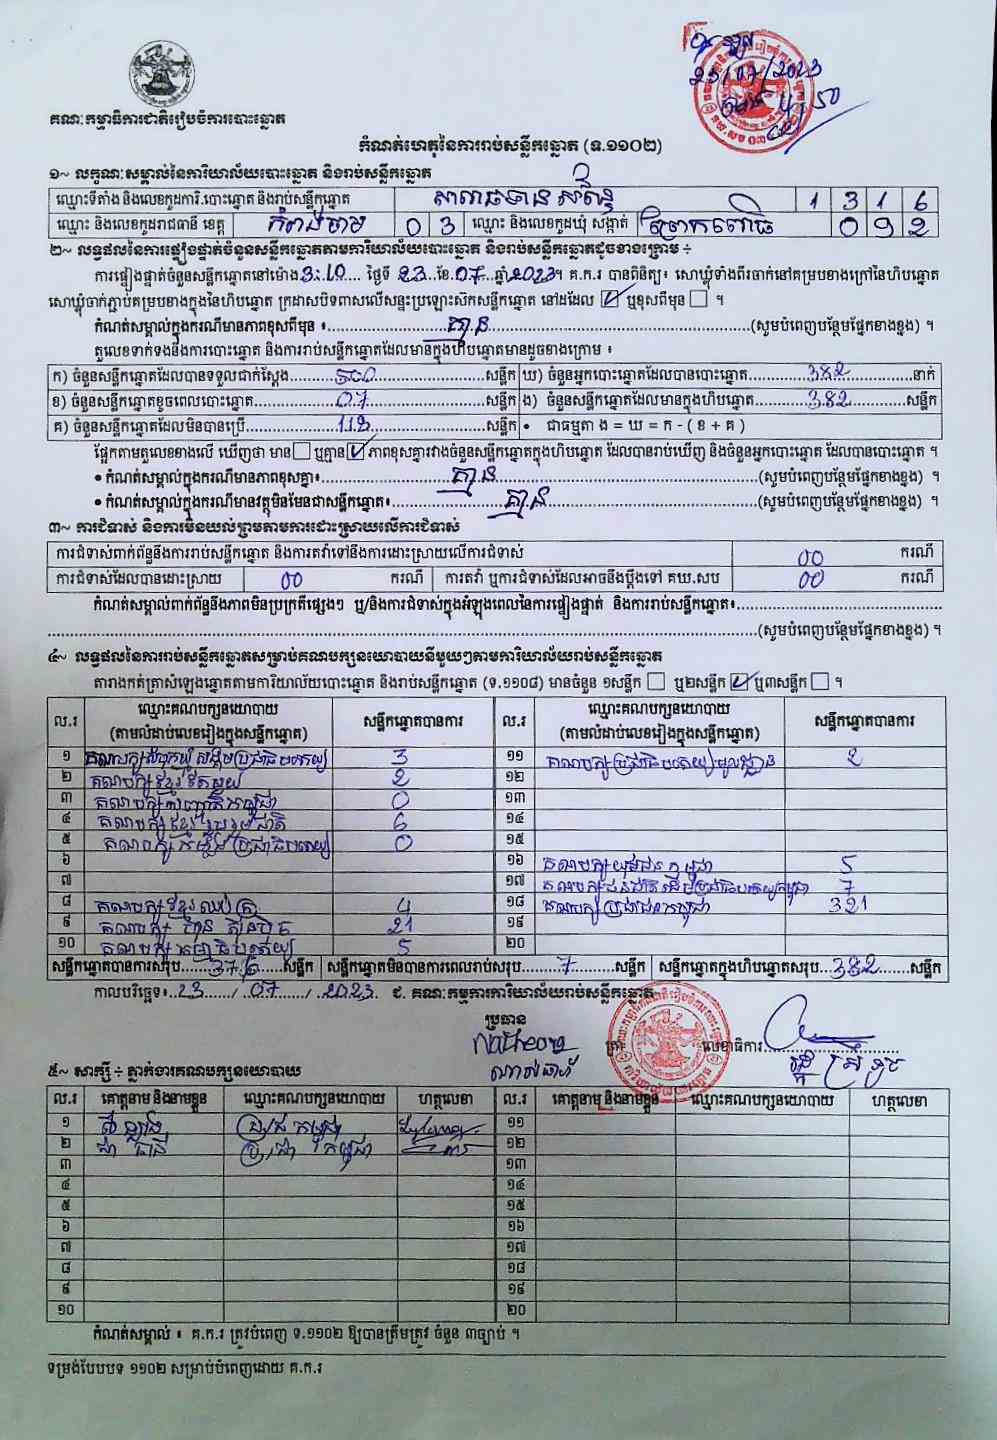 គណៈកម្មាធិការជាតិរៀបចំការបោះឆ្នោត
25/07/2023
កំណត់ហេតុនៃការរាប់សន្លឹកឆ្នោត (ទ.១១០២)
១~ លក្ខណៈសម្គាល់នៃការិយាល័យបោះឆ្នោត និងរាប់សន្លឹកឆ្នោត
ឈ្មោះទីតាំង និងលេខកូដការិ.បោះឆ្នោត និងរាប់សន្លឹកឆ្នោត 1 3 1 6
ឈ្មោះ និងលេខកូដរាជធានី ខេត្ត កំពង់ចាម 0 3 ឈ្មោះ និងលេខកូដឃុំ សង្កាត់ ព្រែកពោធិ 0 9 2
២~ លទ្ធផលនៃការផ្ទៀងផ្ទាត់ចំនួនសន្លឹកឆ្នោតតាមការិយាល័យបោះឆ្នោត និងរាប់សន្លឹកឆ្នោតដូចខាងក្រោម ÷
ការផ្ទៀងផ្ទាត់ចំនួនសន្លឹកឆ្នោតនៅម៉ោង 3:10 ថ្ងៃទី 23 ខែ 07 ឆ្នាំ 2023។ គ.ក.រ បានពិនិត្យ៖ សោឃ្លុំទាំងពីរចាក់នៅគម្របខាងក្រៅនៃហិបឆ្នោត
សោឃ្លុំចាក់ភ្ជាប់គម្របខាងក្នុងនៃហិបឆ្នោត ក្រដាសបិទពាសលើសន្ទះប្រឡោះស៊កសន្លឹកឆ្នោត នៅដដែល ☑ ឬខុសពីមុន ☐ ។
កំណត់សម្គាល់ក្នុងករណីមានភាពខុសពីមុន ៖ គ្មាន (សូមបំពេញបន្ថែមផ្នែកខាងខ្នង) ។
តួលេខទាក់ទងនឹងការបោះឆ្នោត និងការរាប់សន្លឹកឆ្នោតដែលមានក្នុងហិបឆ្នោតមានដូចខាងក្រោម ៖
ក) ចំនួនសន្លឹកឆ្នោតដែលបានទទួលជាក់ស្តែង 500 សន្លឹក ឃ) ចំនួនអ្នកបោះឆ្នោតដែលបានបោះឆ្នោត 382 នាក់
ខ) ចំនួនសន្លឹកឆ្នោតខូចពេលបោះឆ្នោត 07 សន្លឹក ង) ចំនួនសន្លឹកឆ្នោតដែលមានក្នុងហិបឆ្នោត 382 សន្លឹក
គ) ចំនួនសន្លឹកឆ្នោតដែលមិនបានប្រើ សន្លឹក • ជាធម្មតា ង = ឃ = ក - ( ខ + គ )
ផ្អែកតាមតួលេខខាងលើ ឃើញថា មាន ☐ ឬគ្មាន ☑ ភាពខុសគ្នារវាងចំនួនសន្លឹកឆ្នោតក្នុងហិបឆ្នោត ដែលបានរាប់ឃើញ និងចំនួនអ្នកបោះឆ្នោត ដែលបានបោះឆ្នោត ។
• កំណត់សម្គាល់ក្នុងករណីមានភាពខុសគ្នា៖ គ្មាន (សូមបំពេញបន្ថែមផ្នែកខាងខ្នង) ។
• កំណត់សម្គាល់ក្នុងករណីមានវត្ថុមិនមែនជាសន្លឹកឆ្នោត៖ គ្មាន (សូមបំពេញបន្ថែមផ្នែកខាងខ្នង) ។
៣~ ការជំទាស់ និងការមិនយល់ព្រមតាមការដោះស្រាយលើការជំទាស់
ការជំទាស់ពាក់ព័ន្ធនឹងការរាប់សន្លឹកឆ្នោត និងការតវ៉ាទៅនឹងការដោះស្រាយលើការជំទាស់ 00 ករណី
ការជំទាស់ដែលបានដោះស្រាយ 00 ករណី ការតវ៉ា ឬការជំទាស់ដែលអាចនឹងប្តឹងទៅ គឃ.សប 00 ករណី
កំណត់សម្គាល់ពាក់ព័ន្ធនឹងភាពមិនប្រក្រតីផ្សេងៗ ឬ/និងការជំទាស់ក្នុងអំឡុងពេលនៃការផ្ទៀងផ្ទាត់ និងការរាប់សន្លឹកឆ្នោត៖
(សូមបំពេញបន្ថែមផ្នែកខាងខ្នង) ។
៤~ លទ្ធផលនៃការរាប់សន្លឹកឆ្នោតសម្រាប់គណបក្សនយោបាយនីមួយៗតាមការិយាល័យរាប់សន្លឹកឆ្នោត
តារាងកត់ត្រាសំឡេងឆ្នោតតាមការិយាល័យបោះឆ្នោត និងរាប់សន្លឹកឆ្នោត (ទ.១១០៨) មានចំនួន ១សន្លឹក ☐ ឬ២សន្លឹក ☑ ឬ៣សន្លឹក ☐ ។
ល.រ ឈ្មោះគណបក្សនយោបាយ (តាមលំដាប់លេខរៀងក្នុងសន្លឹកឆ្នោត) សន្លឹកឆ្នោតបានការ ល.រ ឈ្មោះគណបក្សនយោបាយ (តាមលំដាប់លេខរៀងក្នុងសន្លឹកឆ្នោត) សន្លឹកឆ្នោតបានការ
១ គណបក្សសំបុកឃ្មុំសង្គមប្រជាធិបតេយ្យ 3 ១១ គណបក្សប្រជាធិបតេយ្យមូលដ្ឋាន 2
២ គណបក្សខ្មែរតែមួយ 2 ១២
៣ គណបក្សកម្ពុជា 0 ១៣
៤ គណបក្សខ្មែររួបរួមជាតិ 6 ១៤
៥ គណបក្សកម្លាំងប្រជាធិបតេយ្យ 0 ១៥
៦ ១៦ គណបក្សយុវជនកម្ពុជា 5
៧ ១៧ 7
៨ គណបក្សខ្មែរឈប់ក្រ 4 ១៨ គណបក្សប្រជាជនកម្ពុជា 321
៩ គណបក្សហ្វ៊ុនស៊ិនប៉ិច 21 ១៩
១០ គណបក្សធម្មាធិបតេយ្យ 5 ២០
សន្លឹកឆ្នោតបានការសរុប 376 សន្លឹក សន្លឹកឆ្នោតមិនបានការពេលរាប់សរុប 7 សន្លឹក សន្លឹកឆ្នោតក្នុងហិបឆ្នោតសរុប 382 សន្លឹក
កាលបរិច្ឆេទ៖ 23 / 07 / 2023 ជ. គណៈកម្មការការិយាល័យរាប់សន្លឹកឆ្នោត
ប្រធាន
ត្រា លេខាធិការ
៥~ សាក្សី ÷ ភ្នាក់ងារគណបក្សនយោបាយ
ល.រ គោត្តនាម និងនាមខ្លួន ឈ្មោះគណបក្សនយោបាយ ហត្ថលេខា ល.រ គោត្តនាម និងនាមខ្លួន ឈ្មោះគណបក្សនយោបាយ ហត្ថលេខា
១ កម្ពុជា ១១
២ កម្ពុជា ១២
៣ ១៣
៤ ១៤
៥ ១៥
៦ ១៦
៧ ១៧
៨ ១៨
៩ ១៩
១០ ២០
កំណត់សម្គាល់ ៖ គ.ក.រ ត្រូវបំពេញ ទ.១១០២ ឱ្យបានត្រឹមត្រូវ ចំនួន ៣ច្បាប់ ។
ទម្រង់បែបបទ ១១០២ សម្រាប់បំពេញដោយ គ.ក.រ